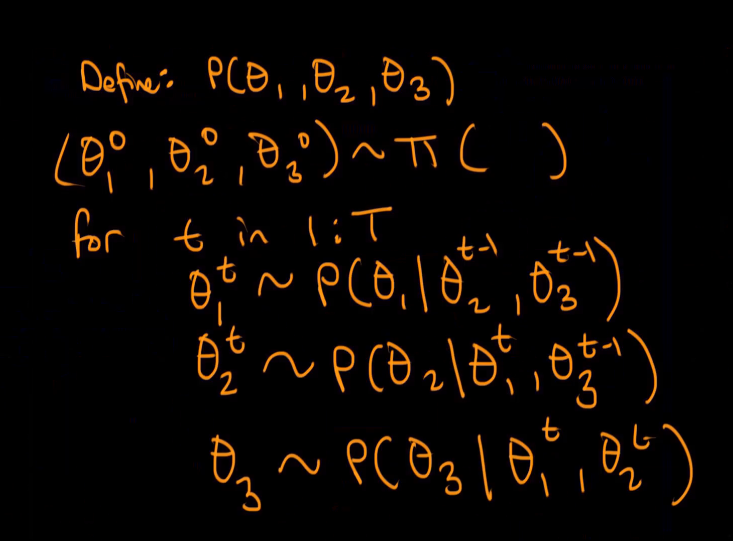 Define: P(θ₁, θ₂, θ₃)
(θ₁⁰, θ₂⁰, θ₃⁰) ~ π( )
for t in 1:T
θ₁ᵗ ~ P(θ₁|θ₂ᵗ⁻¹, θ₃ᵗ⁻¹)
θ₂ᵗ ~ P(θ₂|θ₁ᵗ, θ₃ᵗ⁻¹)
θ₃ ~ P(θ₃|θ₁ᵗ, θ₂ᵗ)